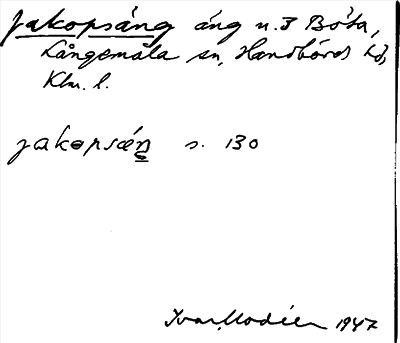 Jakopsäng äng n. 3 Bóta,
Långemåla sn, Handbörds hd,
Klm. l.
jakɵpsæŋ s. 130
Ivar Modéer 1947